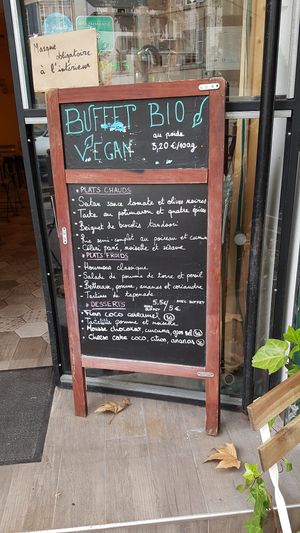 Masque
obligatoire
à l'intérieur
BUFFET BIO
VEGAN
au poids
3,20 €/100g
• PLATS CHAUDS
- Seitan sauce tomate et olives noires
- Tarte au potimarron et quatre épices
- Beignet de brocolis tandoori
- Riz semi-complet au poireau et cumin
- Céleri pané, noisette et sésame
• PLATS FROIDS
- Houmous classique
- Salade de pomme de terre et persil
- Betterave, pomme, ananas et coriandre
- Tartines de tapenade
• DESSERTS 5.5€/ AVEC BUFFET
BUFFET / 5 €
- Flan coco caramel
- Tartelette pomme et noisette
- Mousse chocolat, curcuma,
- Cheese cake coco, citron, ananas